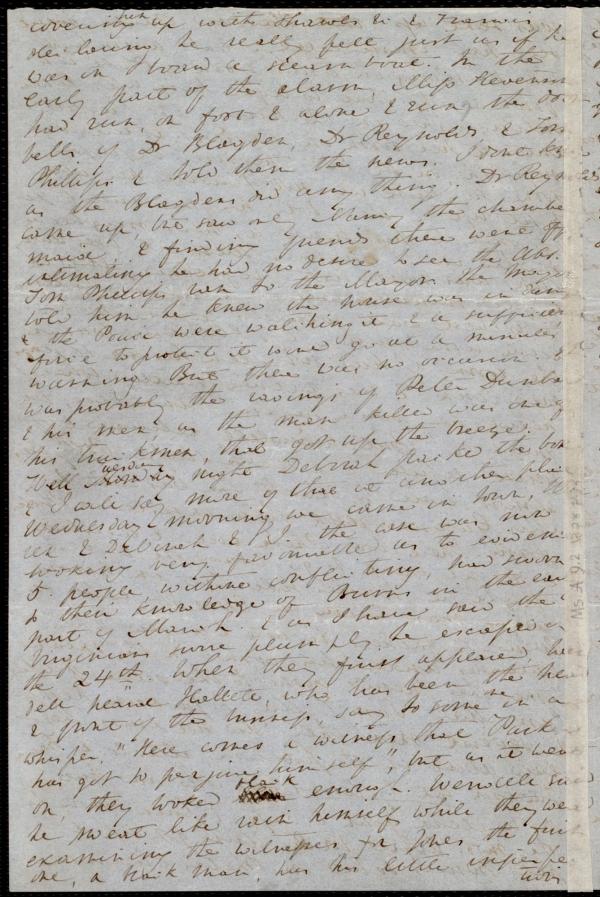 covering up with shawls &c & Francis
declaring he really felt just as if he
was in board a steam boat. In the
early part of the alarm, Miss Stevenson
had run, on foot & alone & rung the door
bells of Dr Blagden, Dr Reynolds, & Tom
Phillips & told them the news. I dont know
as the Blagdens did any thing. Dr Reynolds
came up, he saw only Nancy the chamber
maid & finding friends there were off
intimating he had no desire to see the Abs.
Tom Phillips ran to the Mayor. The Mayor
told him he knew the house was in
& the Police were watching it & a sufficient
force to protect it would go at a minutes
warning But there was no occasion.
was probably the ravings of Peter Dunbar
& his men as the man killed was one of
his truckmen, that got up the breeze.
Well Tuesday night Deborah packed the box
I will say more of that at another place
Wednesday morning we came in town,
& Deborah & I. The case was now
looking very favourable as to evidence
5 people, without conflicting, had sworn
to their knowledge of Burns in the early
part of March & as I have said the
Virginians swore plumply he escaped on
the 24th. When they first appeared
heard Hallett, who has been the head
& front of this business, say to some one in a
whisper, "Here comes a witness that Park
has got to perjure himself", but as it went
on, they looked black enough. Wendell said
he sweat like rain himself while they were
examining the witnesses for Jones the first
one, a black man, has his little imperfec
tions
MS A.9.2